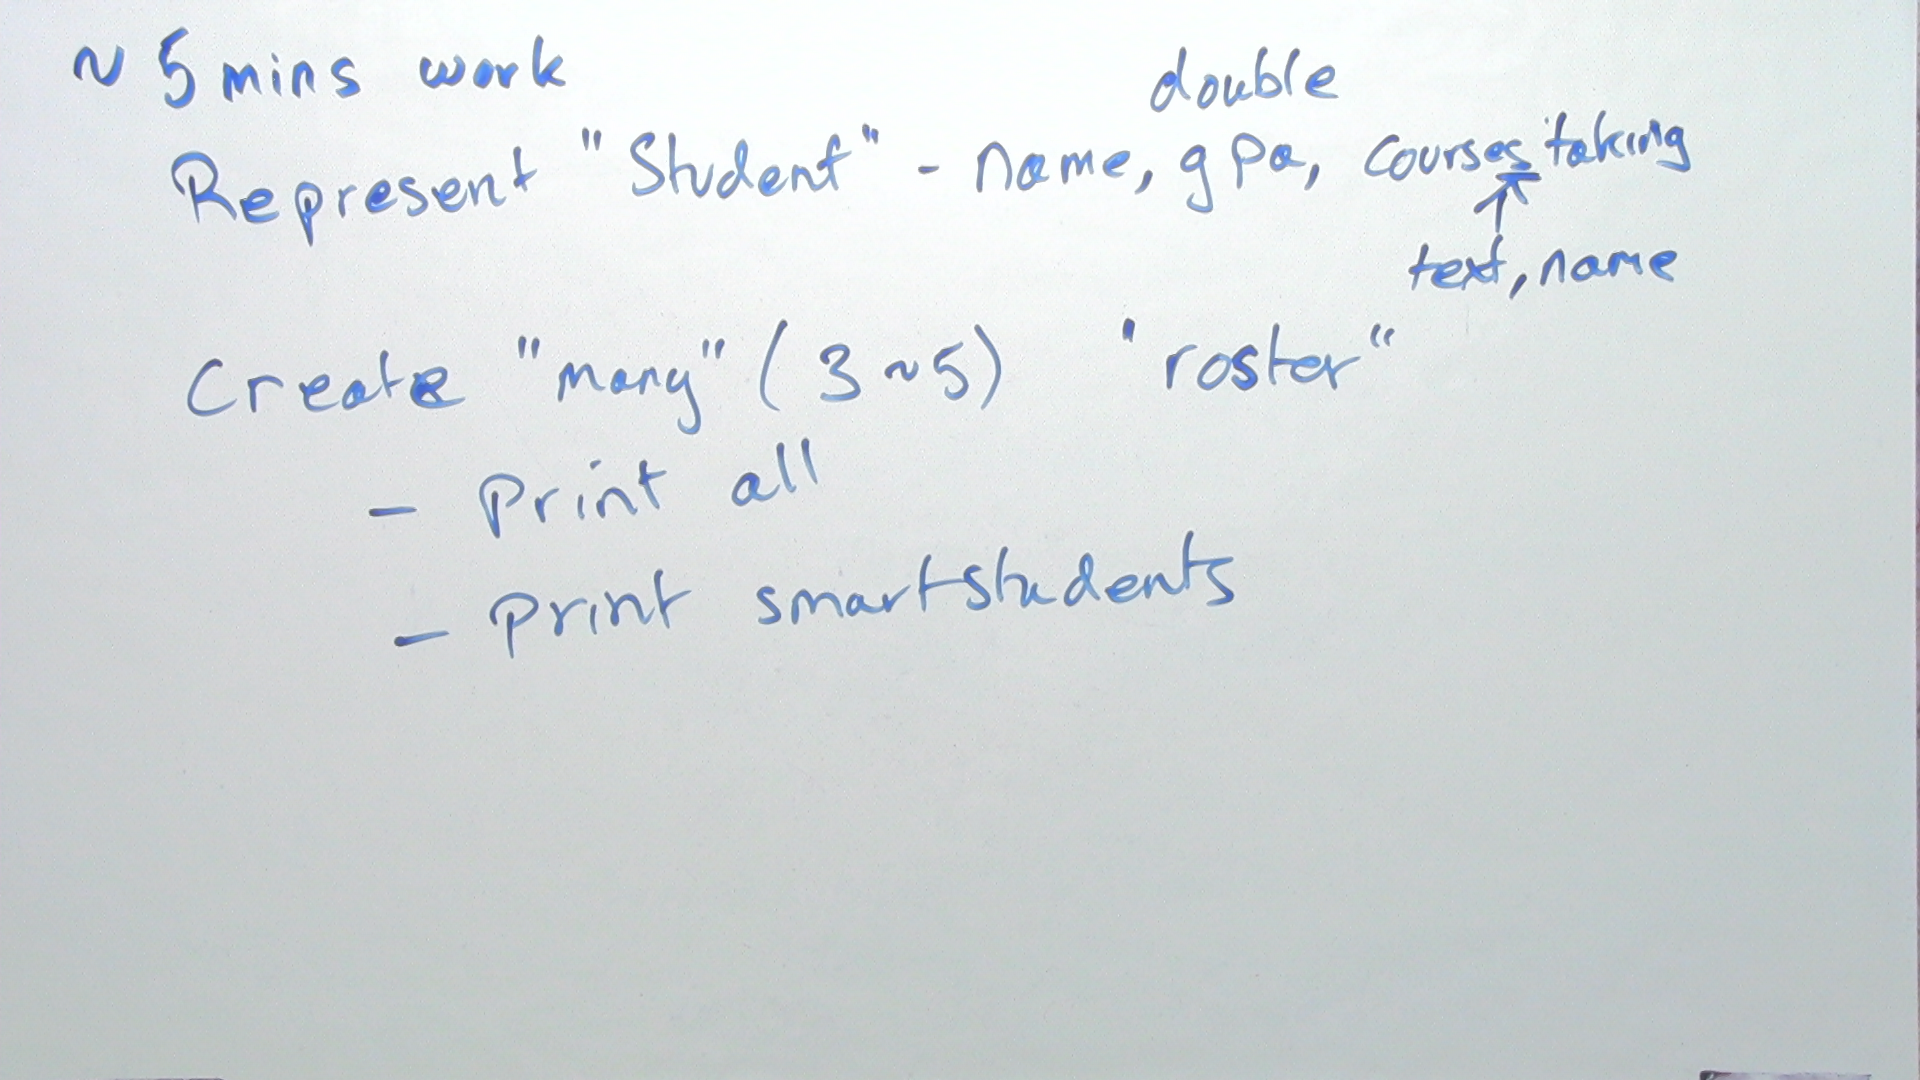 ~ 5 mins work
double
Represent "Student" - name, gpa, courses taking
↑
text, name
Create "many" (3~5) 'roster"
- Print all
- Print smartstudents